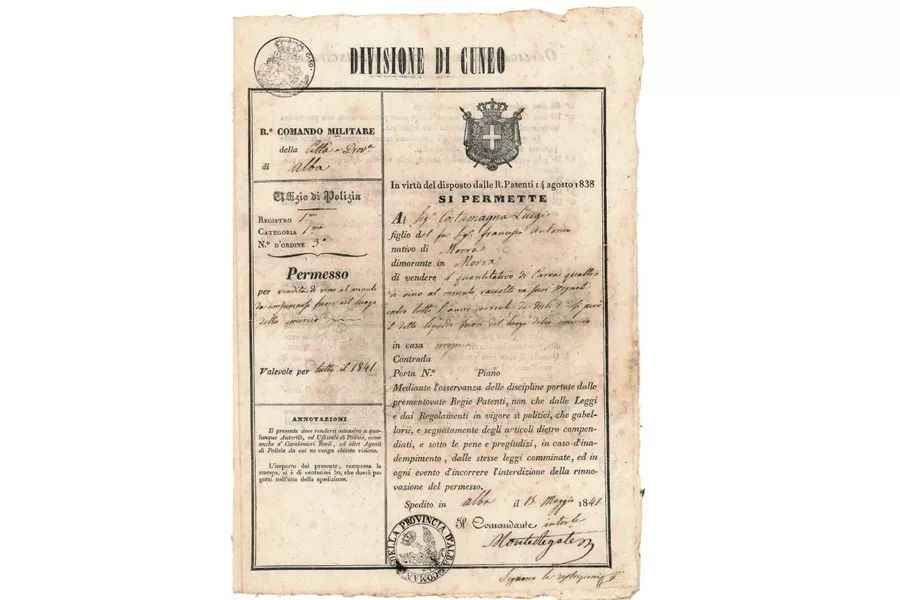 DIVISIONE DI CUNEO
R.º COMANDO MILITARE
della Città e Prov.ª
di Alba
Uffizio di Polizia
REGISTRO 1.mo
CATEGORIA 1.ma
N.º D'ORDINE 3.º
Permesso
per vendita di vino al minuto
da consumarsi fuori del luogo
dello smercio
Valevole per tutto il 1841
ANNOTAZIONI
Il presente deve rendersi ostensivo a qua-
lunque Autorità, ed Uffiziale di Polizia, come
anche a' Carabinieri Reali, ed altri Agenti
di Polizia da cui ne venga chiesta visione.
L'importo del presente, compresa la
stampa, si è di centesimi 50, che dovrà pa-
garsi nell'atto della spedizione.
In virtù del disposto dalle R. Patenti 14 agosto 1838
SI PERMETTE
Al Sig.r Costamagna Luigi
figlio del fu Sig. Francesco Antonio
nativo di Morra
dimorante in Morra
di vendere il quantitativo di Carra quattro
di vino al minuto raccolto ne' suoi vigneti
entro tutto l'anno corrente
il detto liquido fuori del luogo dello smercio
in casa propria
Contrada
Porta N.º Piano
Mediante l'osservanza delle discipline portate dalle
prementovate Regie Patenti, non che dalle Leggi
e dai Regolamenti in vigore sì politici, che gabel-
larii, e segnatamente degli articoli dietro compen-
diati, e sotto le pene e pregiudizi, in caso d'ina-
dempimento, dalle stesse leggi comminate, ed in
ogni evento d'incorrere l'interdizione della rinno-
vazione del permesso.
Spedito in Alba il 15 Maggio 1841
Il Comandante
DELLA PROVINCIA D'ALBA